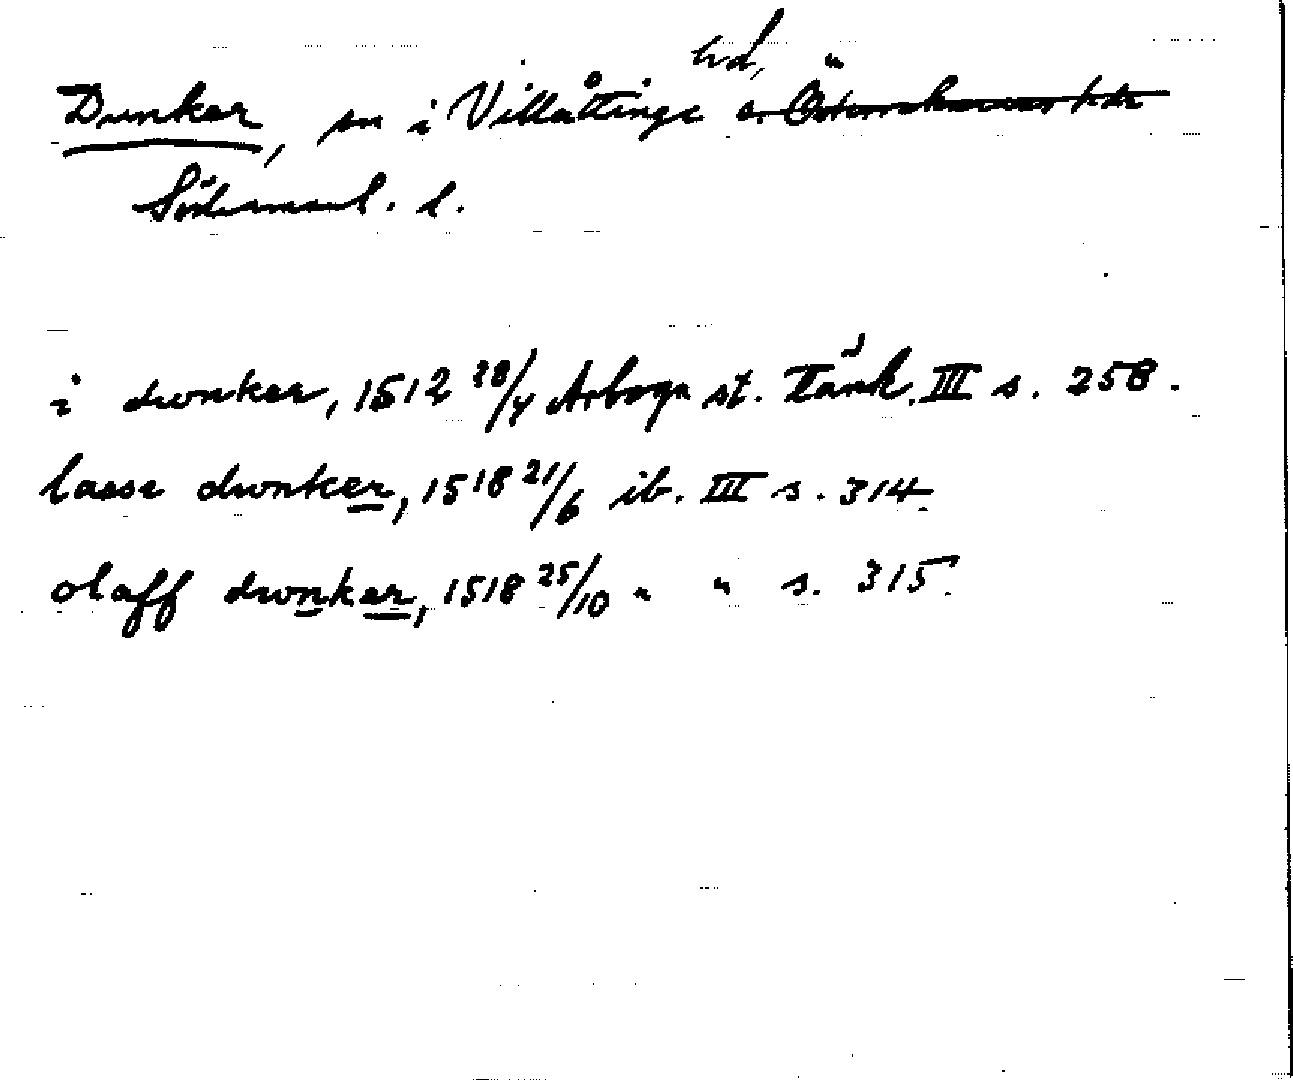 Dunker, sn i Villåttinge hd, o. Österrekarne hdr
Södermanl. l.
i dwnker, 1512 28/4 Arboga st. Tänk. III s. 258.
lasse dwnker, 1518 21/6 ib. III s. 314.
olaff dwnker, 1518 25/10 " " s. 315.